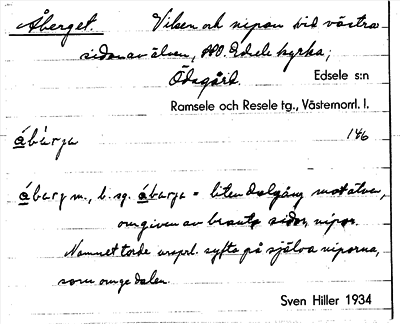 Åberget. Vilsen och nipan vid västra
sidan av älven, NV. Edsele kyrka;
Ödegård. Edsele s:n
Ramsele och Resele tg., Västernorrl. l.
ábàrja 146
ábarj m., b. sg. ábarja = liten dalgång mot älven,
omgiven av branta sidor, nipor.
Namnet torde urspr. syfta på själva niporna,
som omge dalen.
Sven Hiller 1934